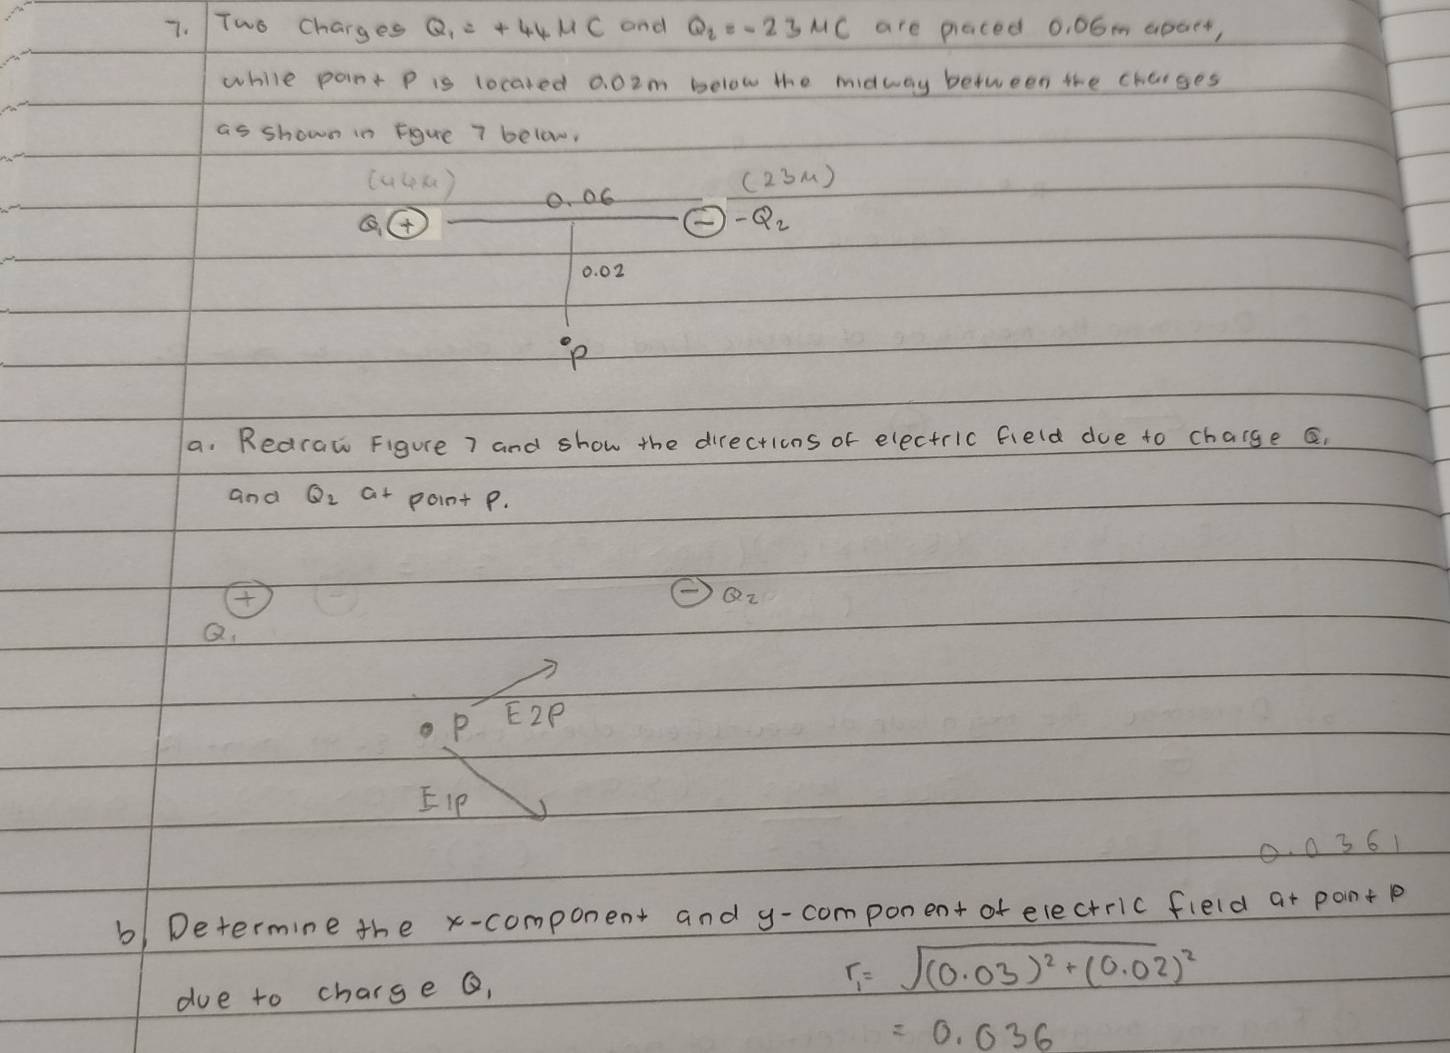 7. Two Charges Q₁ = +44 μC and Q₂ = -23 μC are placed 0.06m apart,
while point P is located 0.02m below the midway between the charges
as shown in Figure 7 below.
(44μ) 0.06 (23μ)
Q₁ + − -Q₂
0.02
P
a. Redraw Figure 7 and show the directions of electric field due to charge Q₁
and Q₂ at point P.
+ − Q₂
Q₁
P E2P
E1P
0.0361
b) Determine the x-component and y-component of electric field at point P
due to charge Q₁ r₁ = √(0.03)² + (0.02)²
= 0.036